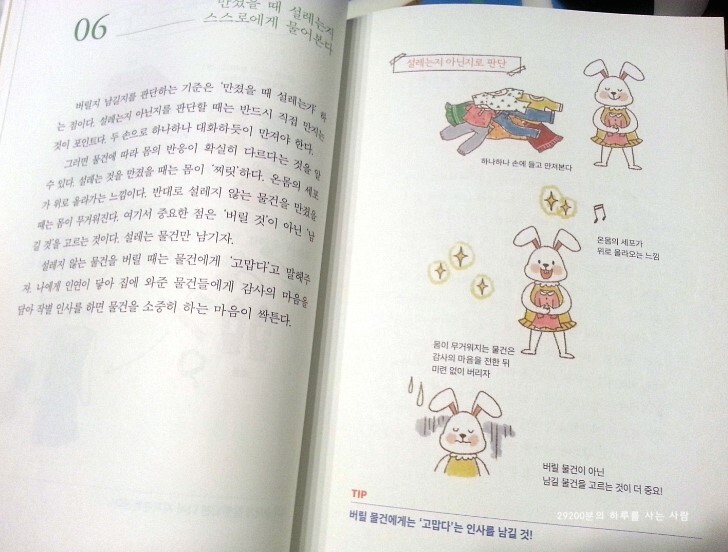 06
만졌을 때 설레는지
스스로에게 물어본다
버릴지 남길지를 판단하는 기준은 '만졌을 때 설레는가' 하
는 점이다. 설레는지 아닌지를 판단할 때는 반드시 직접 만지는
것이 포인트다. 두 손으로 하나하나 대화하듯이 만져야 한다.
그러면 물건에 따라 몸의 반응이 확실히 다르다는 것을 알
수 있다. 설레는 것을 만졌을 때는 몸이 '찌릿'하다. 온몸의 세포
가 위로 올라가는 느낌이다. 반대로 설레지 않는 물건을 만졌을
때는 몸이 무거워진다. 여기서 중요한 점은 '버릴 것'이 아닌 '남
길 것'을 고르는 것이다. 설레는 물건만 남기자.
설레지 않는 물건을 버릴 때는 물건에게 '고맙다'고 말해주
자. 나에게 인연이 닿아 집에 와준 물건들에게 감사의 마음을
담아 작별 인사를 하면 물건을 소중히 하는 마음이 싹튼다.
설레는지 아닌지로 판단
하나하나 손에 들고 만져본다
온몸의 세포가
위로 올라오는 느낌
몸이 무거워지는 물건은
감사의 마음을 전한 뒤
미련 없이 버리자
버릴 물건이 아닌
남길 물건을 고르는 것이 더 중요!
TIP
버릴 물건에게는 '고맙다'는 인사를 남길 것!
29200분의 하루를 사는 사람